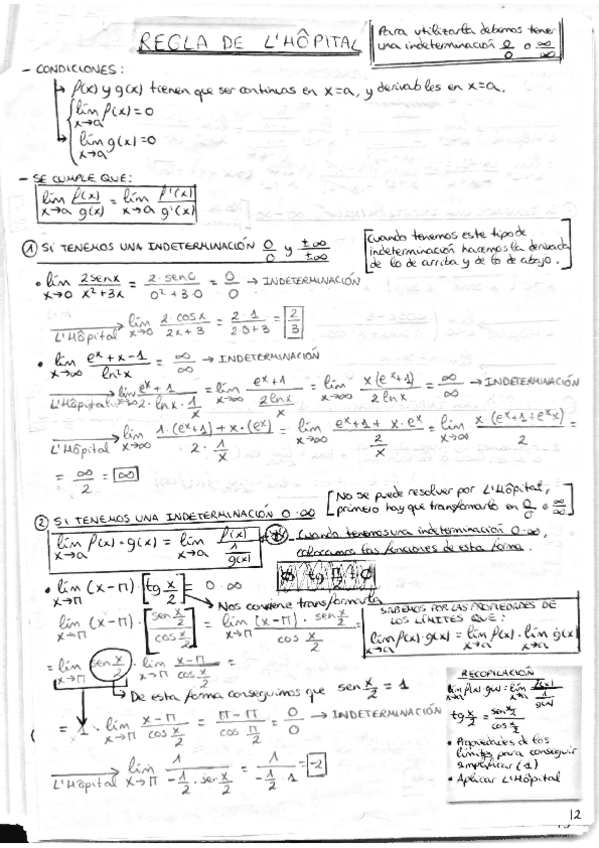 REGLA DE L'HÔPITAL
Para utilizarla debemos tener
una indeterminación 0/0 o ∞/∞
- CONDICIONES:
↳ f(x) y g(x) tienen que ser continuas en x=a, y derivables en x=a.
lím x→a f(x) = 0
lím x→a g(x) = 0
- SE CUMPLE QUE:
lím x→a f(x)/g(x) = lím x→a f'(x)/g'(x)
① SI TENEMOS UNA INDETERMINACIÓN 0/0 y ±∞/±∞
[Cuando tenemos este tipo de
indeterminación hacemos la derivada
de lo de arriba y de lo de abajo.]
• lím x→0 2senx/x²+3x = 2·sen0/0²+3·0 = 0/0 → INDETERMINACIÓN
L'Hôpital → lím x→0 2·cosx/2x+3 = 2·1/2·0+3 = 2/3
• lím x→∞ e^x+x-1/ln²x = ∞/∞ → INDETERMINACIÓN
L'Hôpital → lím x→∞ e^x+1/2·lnx·1/x = lím x→∞ e^x+1/2lnx/x = lím x→∞ x(e^x+1)/2lnx = ∞/∞ → INDETERMINACIÓN
L'Hôpital → lím x→∞ 1·(e^x+1)+x·(e^x)/2·1/x = lím x→∞ e^x+1+x·e^x/2/x = lím x→∞ x·(e^x+1+e^x x)/2 =
= ∞/2 = ∞
② SI TENEMOS UNA INDETERMINACIÓN 0·∞
[No se puede resolver por L'Hôpital,
primero hay que transformarlo en 0/0 o ∞/∞]
lím x→a f(x)·g(x) = lím x→a f(x)/1/g(x)
Cuando tenemos una indeterminación 0·∞,
colocamos las funciones de esta forma.
• lím x→π (x-π)·[tg x/2] = 0·∞
Nos conviene transformarla
lím x→π (x-π)·[sen x/2/cos x/2] = lím x→π (x-π)·sen x/2/cos x/2
SABEMOS POR LAS PROPIEDADES DE
LOS LÍMITES QUE:
lím x→a f(x)·g(x) = lím x→a f(x)·lím x→a g(x)
= lím x→π sen x/2 · lím x→π x-π/cos x/2 =
↳ De esta forma conseguimos que sen x/2 = 1
= 1·lím x→π x-π/cos x/2 = π-π/cos π/2 = 0/0 → INDETERMINACIÓN
L'Hôpital → lím x→π 1/-1/2·sen x/2 = 1/-1/2·1 = -2
RECOPILACIÓN
lím x→a f(x)·g(x) = lím x→a f(x)/1/g(x)
tg x/2 = sen x/2/cos x/2
• Propiedades de los
límites para conseguir
simplificar (1)
• Aplicar L'Hôpital
12